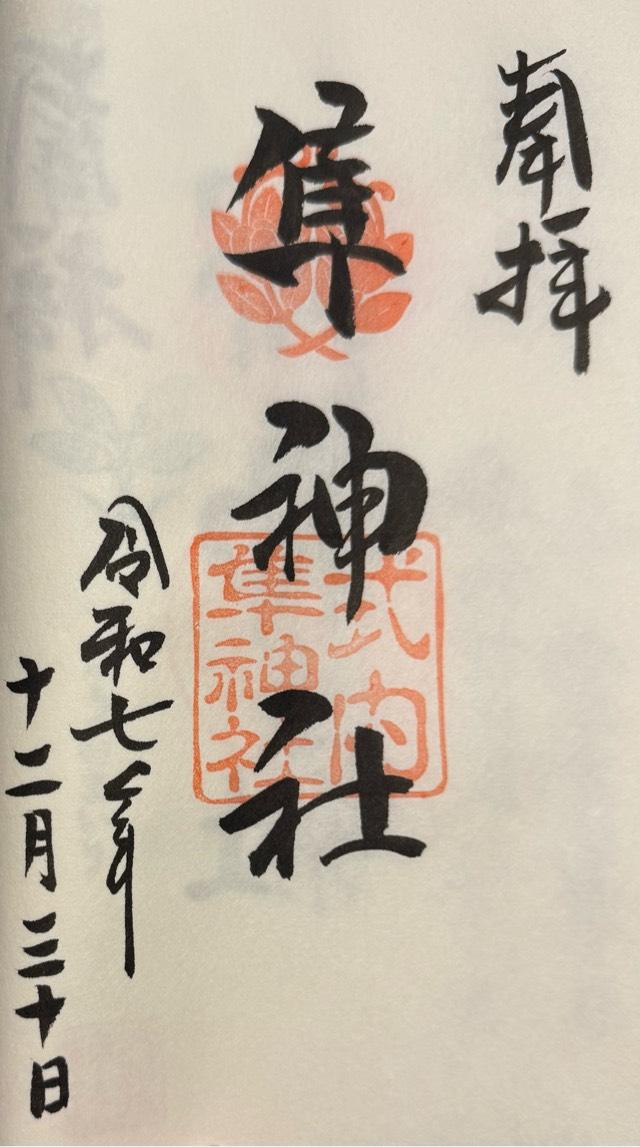 奉拝
隼神社
式内
隼神社
令和七年
十二月三十日